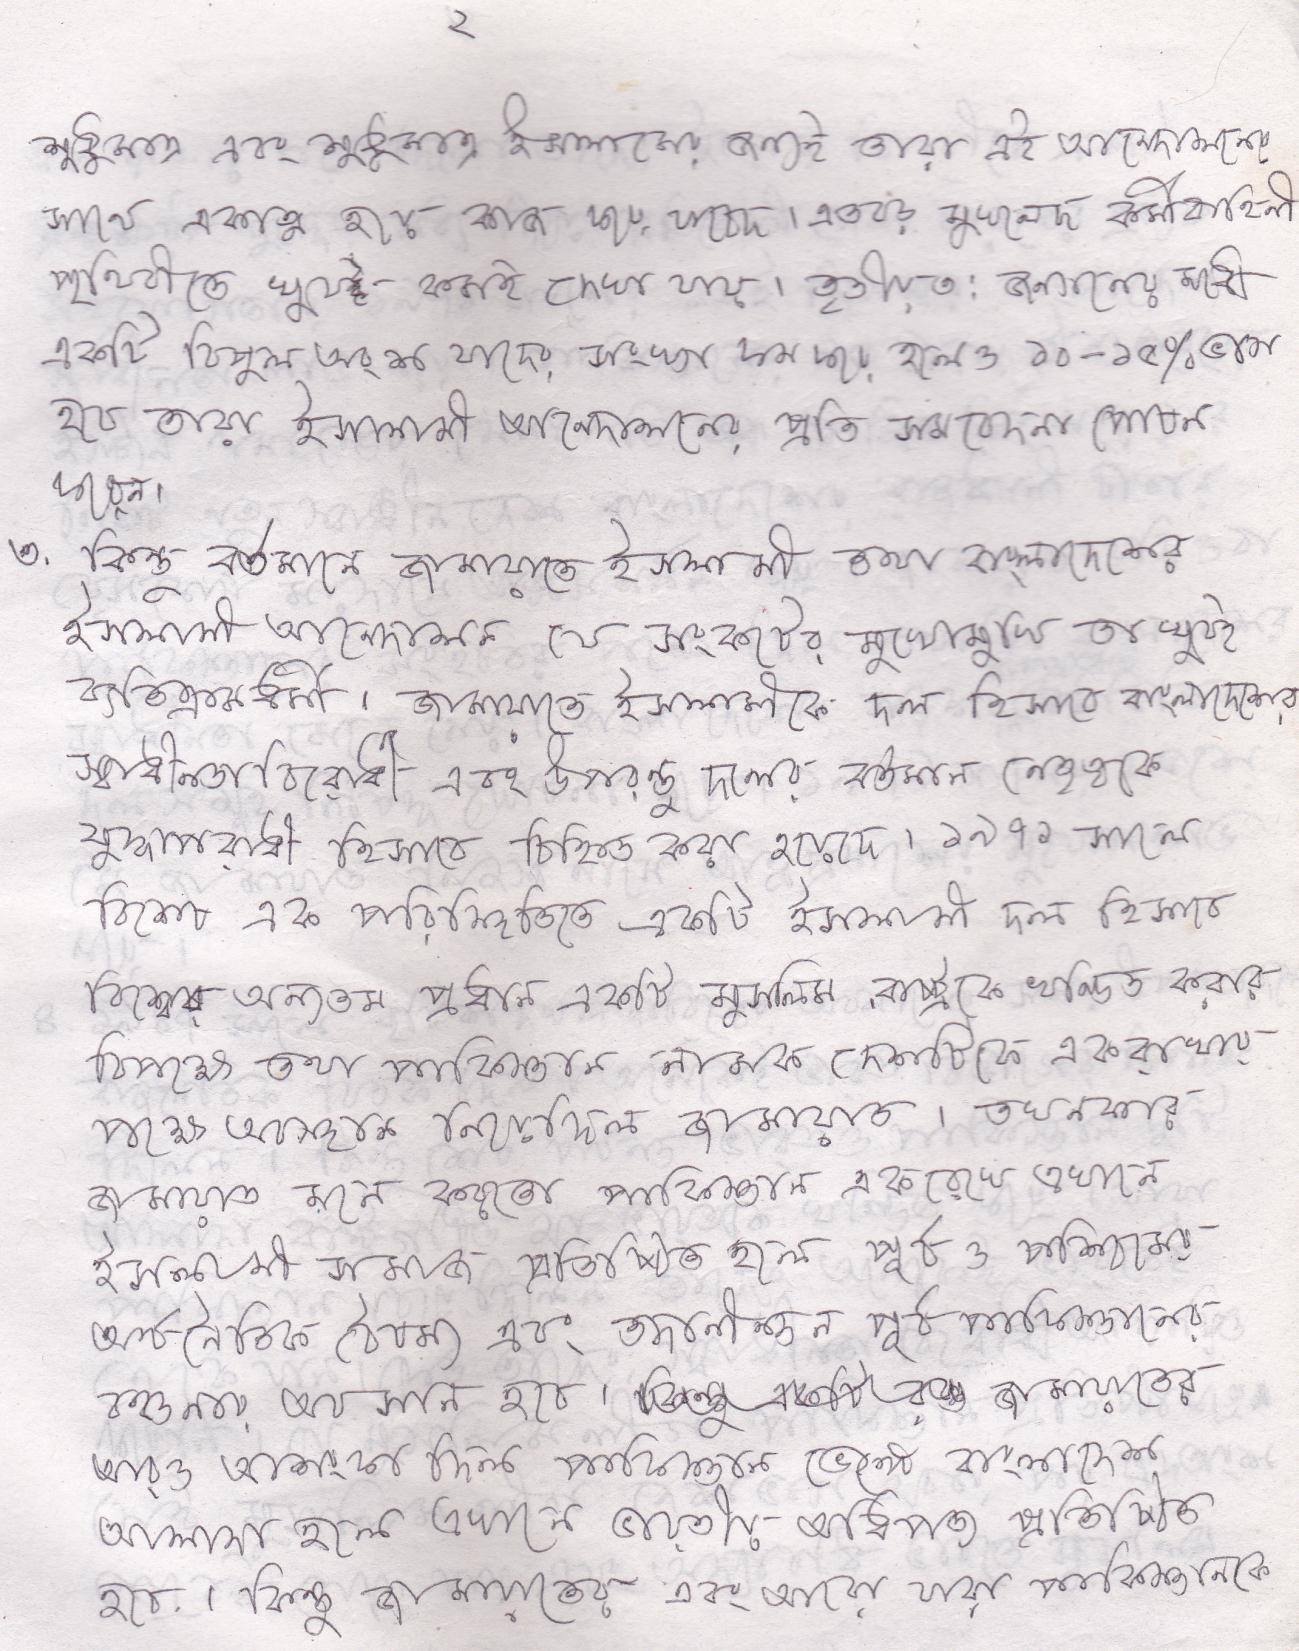 ২
শুধুমাত্র এবং শুধুমাত্র ইসলামের জন্যই তারা এই আন্দোলনের
সাথে একাত্ম হয়ে কাজ করে যাচ্ছে। এতবড় সুশৃংখল কর্মীবাহিনী
পৃথিবীতে খুবই কমই দেখা যায়। তৃতীয়ত: জনগনের মধ্যে
একটি বিপুল অংশ যাদের সংখ্যা কম করে হলেও ১০-১৫% ভাগ
হবে তারা ইসলামী আন্দোলনের প্রতি সমবেদনা পোষন
করেন।
৩. কিন্তু বর্তমানে জামায়াতে ইসলামী তথা বাংলাদেশের
ইসলামী আন্দোলন যে সংকটের মুখোমুখি তা খুবই
ব্যতিক্রমধর্মী। জামায়াতে ইসলামীকে দল হিসাবে বাংলাদেশের
স্বাধীনতা বিরোধী এবং উপরন্তু দলের বর্তমান নেতৃত্বকে
যুদ্ধাপরাধী হিসাবে চিহ্নিত করা হয়েছে। ১৯৭১ সালে
বিশেষ এক পরিস্থিতিতে একটি ইসলামী দল হিসাবে
বিশ্বের অন্যতম প্রধান একটি মুসলিম রাষ্ট্রকে খন্ডিত করার
বিপক্ষে তথা পাকিস্তান নামক দেশটিকে এক রাখার
পক্ষে অবস্থান নিয়েছিল জামায়াত। তখনকার
জামায়াত মনে করতো পাকিস্তান এক রেখে এখানে
ইসলামী সমাজ প্রতিষ্ঠিত হলে পূর্ব ও পশ্চিমের
অর্থনৈতিক বৈষম্য এবং তদানীন্তন পূর্ব পাকিস্তানের
বঞ্চনার অবসান হবে। জামায়াতের
আরও আশংকা ছিল পাকিস্তান ভেঙ্গে বাংলাদেশ
আলাদা হলে এখানে ভারতীয় আধিপত্য প্রতিষ্ঠিত
হবে। কিন্তু জামায়াতের এবং আরো যারা পাকিস্তানকে